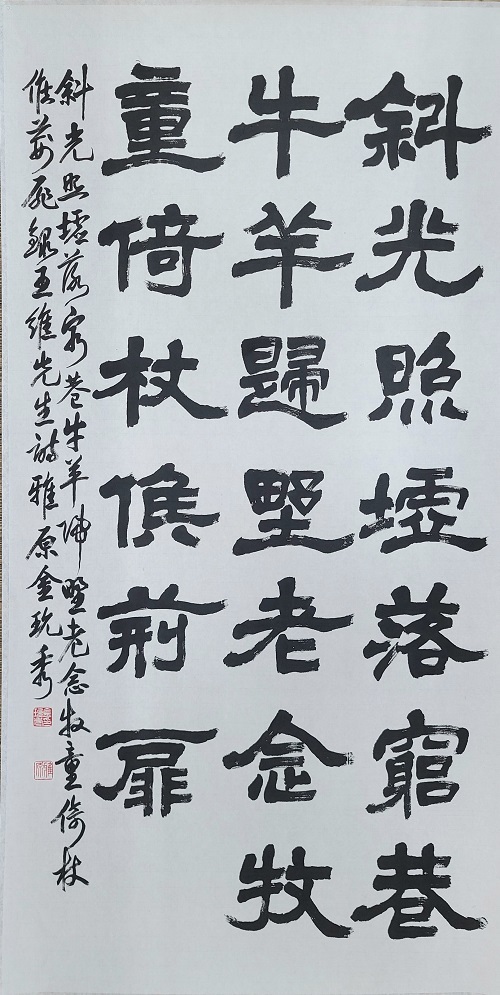 斜光照墟落窮巷
牛羊歸野老念牧
童倚杖候荊扉
斜光照墟落窮巷牛羊歸野老念牧童倚杖
候荊扉錄王維先生詩雅原金秀